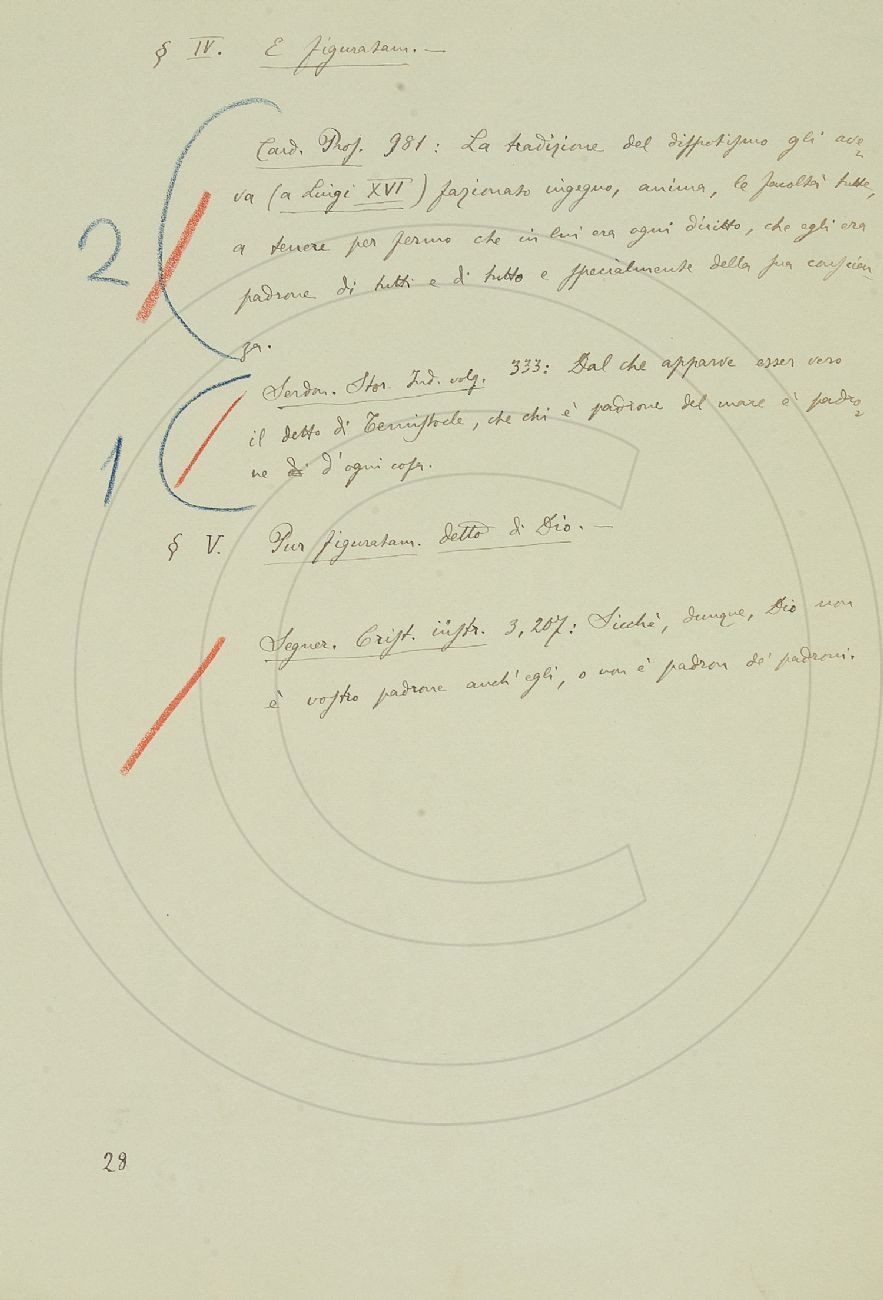 § IV. E figuratam. —
Card. Pros. 981: La tradizione del dispotismo gli ave=
2
va (a Luigi XVI) fazionato ingegno, anima, le facoltà tutte,
a tenere per fermo che in lui era ogni diritto, che egli era
padrone di tutti e di tutto e specialmente della sua coscien
za.
Serdon. Stor. Ind. volg. 333: Dal che apparve esser vero
1
il detto di Temistocle, che chi è padrone del mare è padro=
ne di d'ogni cosa.
§ V. Pur figuratam. detto di Dio. —
Segner. Crist. instr. 3, 207: Sicchè, dunque, Dio non
è vostro padrone anch'egli, o non è padron de' padroni.
28